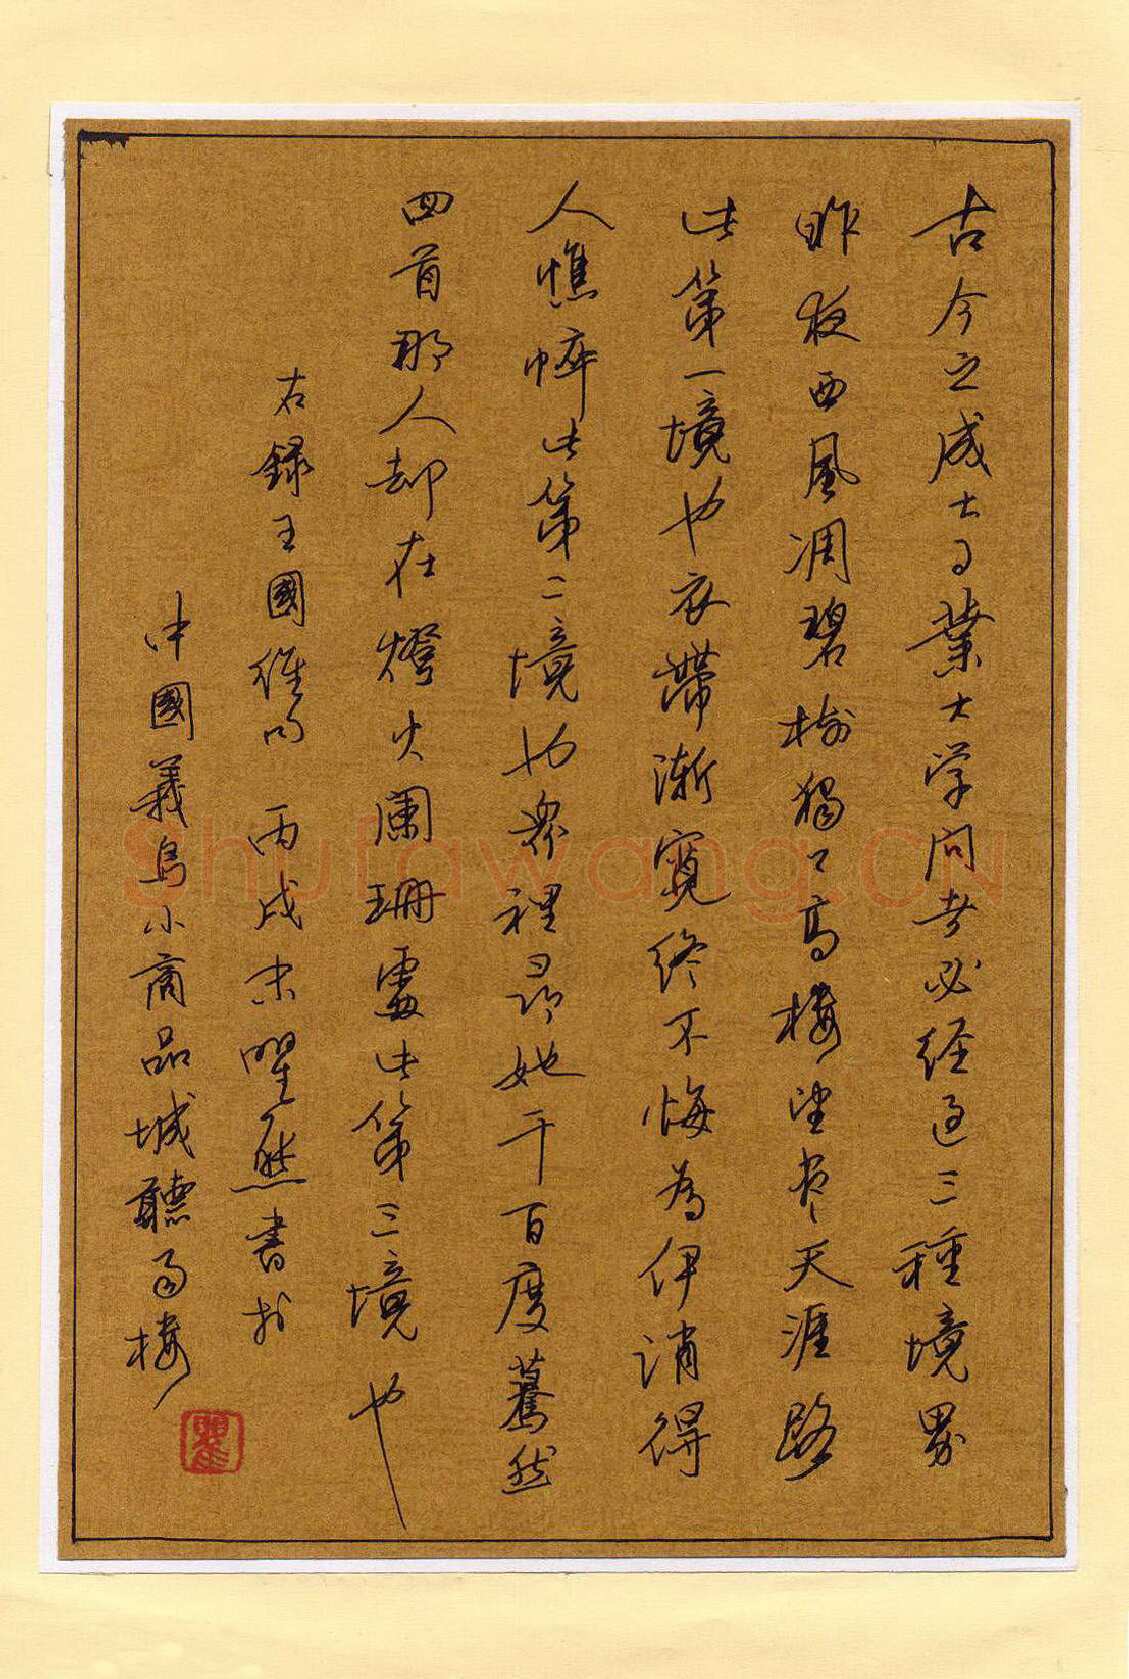 古今之成大事業大学问者必经过三種境界
昨夜西風凋碧樹獨上高樓望尽天涯路
此第一境也衣帶漸寬終不悔為伊消得
人憔悴此第二境也衆裡尋她千百度驀然
回首那人却在燈火闌珊處此第三境也
右録王國維句 丙戌 曜 書於
中國義烏小商品城聽雨樓
Shufawang.CN